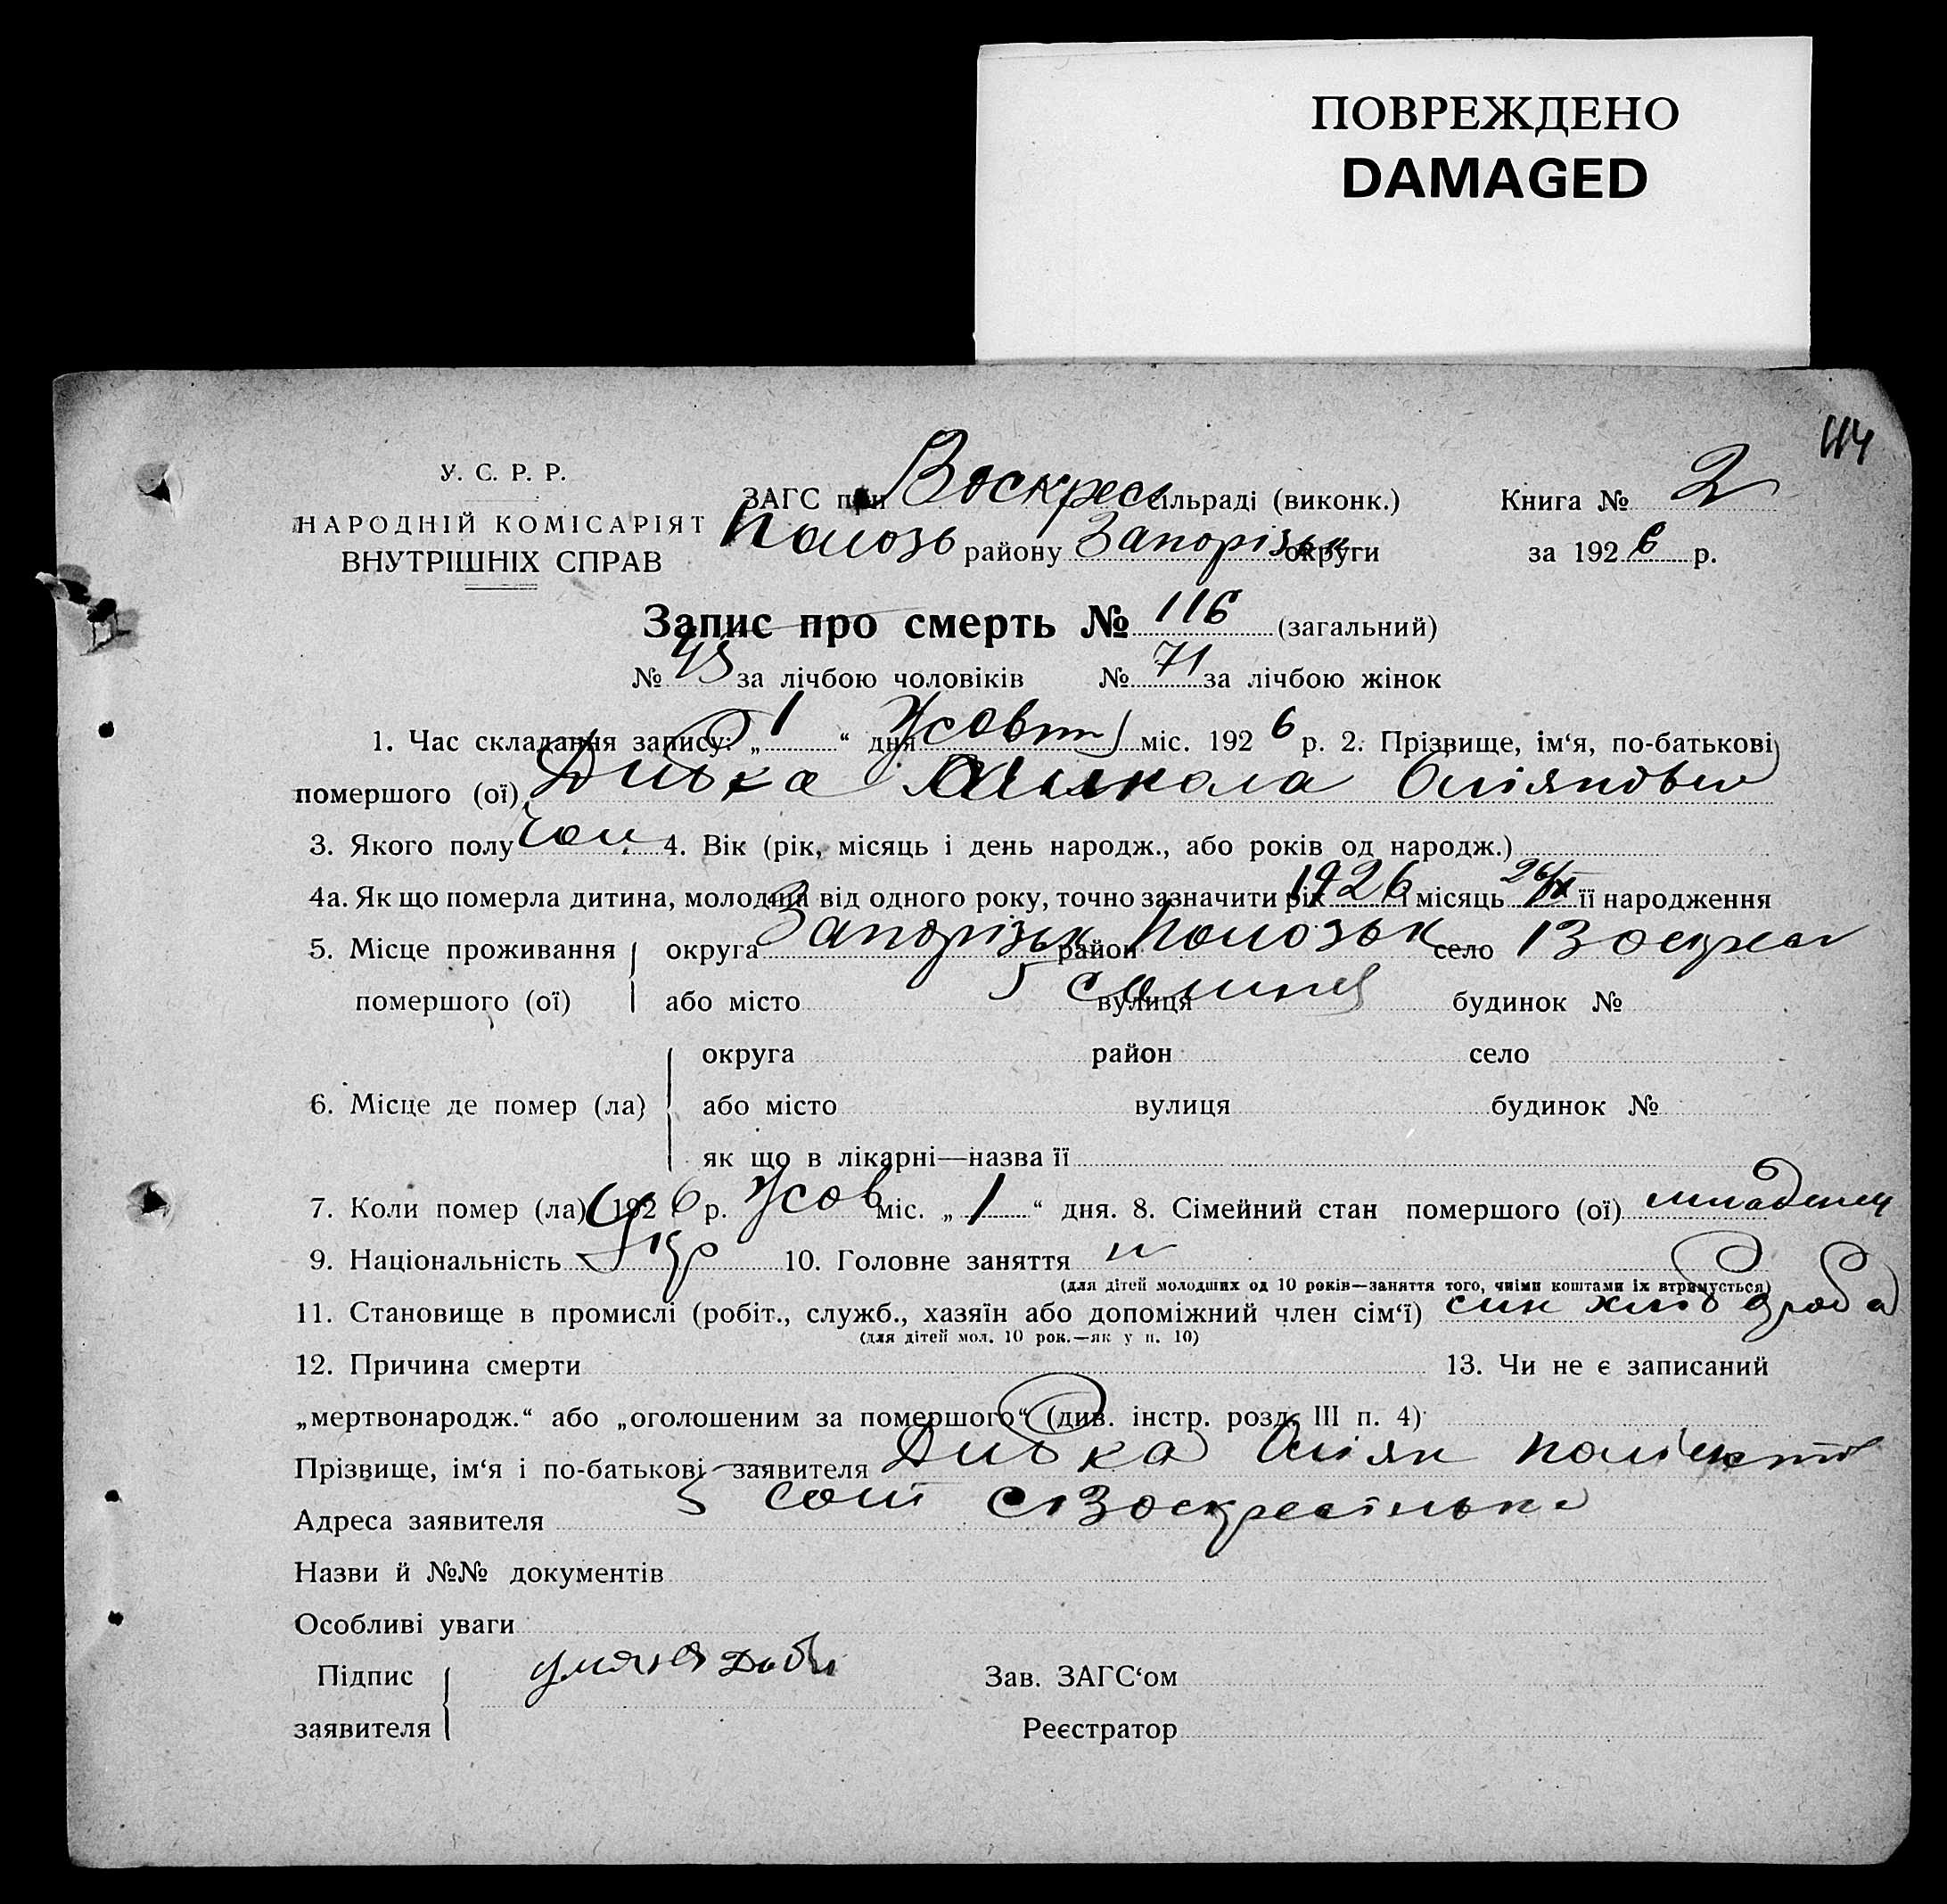 ПОВРЕЖДЕНО
DAMAGED
У. С. Р. Р.
НАРОДНІЙ КОМІСАРІЯТ
ВНУТРІШНІХ СПРАВ
ЗАГС при Воскрес сільраді (виконк.) Книга № 2
району Запорізьк округи за 1926 р.
Запис про смерть № 116 (загальний)
№ 45 за лічбою чоловіків № 71 за лічбою жінок
1. Час складання запису: „ 1 “ дня міс. 1926 р. 2. Прізвище, ім‘я, по-батькові
помершого (ої) Дибка Микола
3. Якого полу чол 4. Вік (рік, місяць і день народж., або років од народж.)
4а. Як що померла дитина, молодша від одного року, точно зазначити рік 1926 і місяць 26/IX її народження
5. Місце проживання округа Запорізьк район село Воскрес
помершого (ої) або місто 5 сотня вулиця будинок №
округа район село
6. Місце де помер (ла) або місто вулиця будинок №
як що в лікарні—назва її
7. Коли помер (ла) 1926 р. міс. „ 1 “ дня. 8. Сімейний стан помершого (ої) младенец
9. Національність Укр 10. Головне заняття
(для дітей молодших од 10 років—заняття того, чиїми коштами їх втримується)
11. Становище в промислі (робіт., служб., хазяїн або допоміжний член сім‘ї) син хлібороба
(для дітей мол. 10 рок.—як у п. 10)
12. Причина смерти 13. Чи не є записаний
„мертвонародж.“ або „оголошеним за помершого“ (див. інстр. розд. III п. 4)
Прізвище, ім‘я і по-батькові заявителя Дибка
Адреса заявителя 5 сот
Назви й №№ документів
Особливі уваги
Підпис
заявителя
Зав. ЗАГС‘ом
Реєстратор